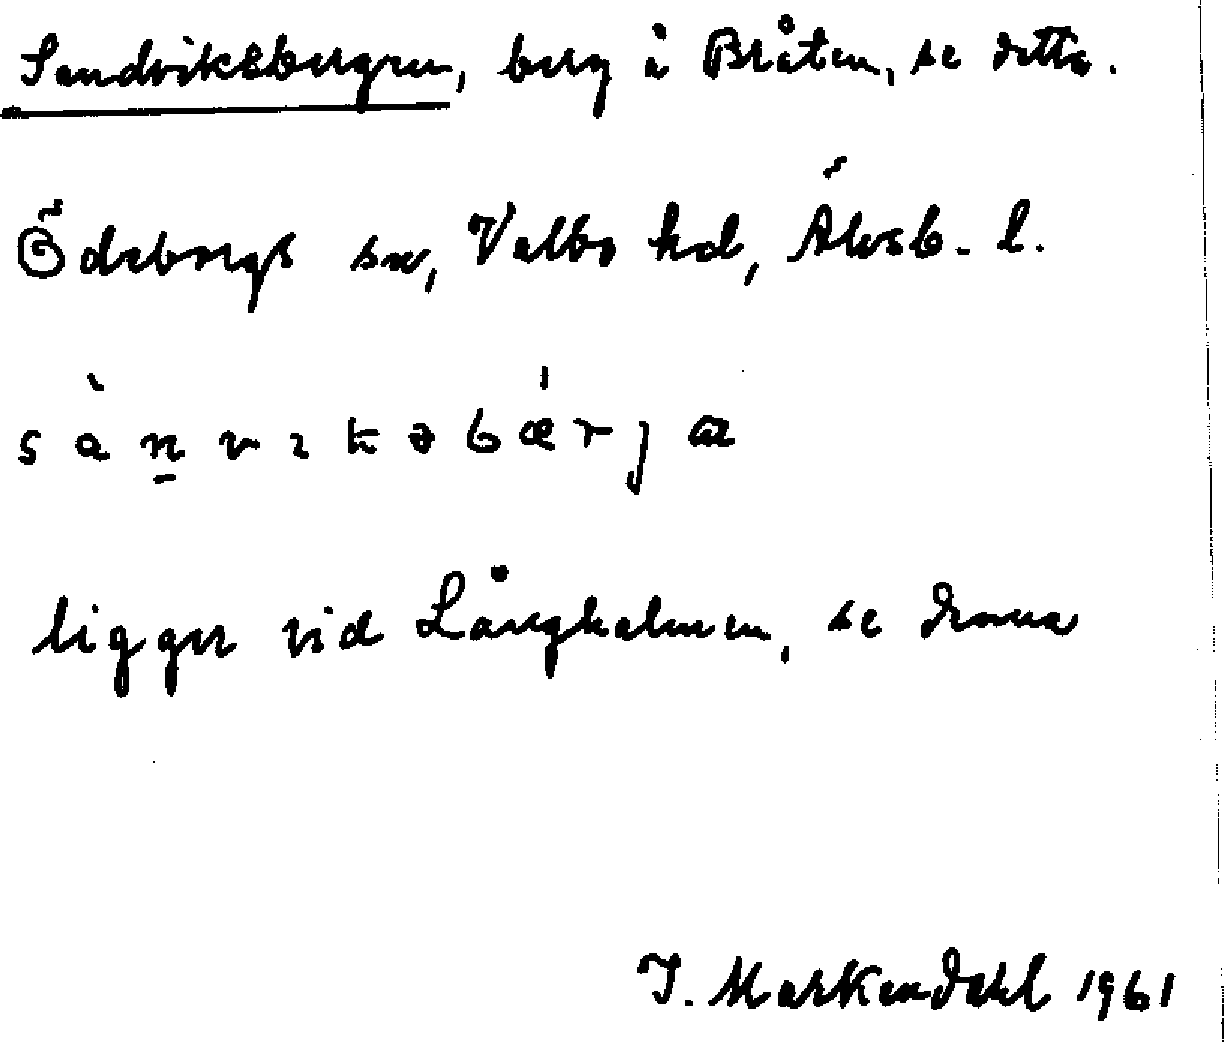 Sandviksbergen, berg å Bråten, se detta.
Ödeborgs sn, Valbo hd, Älvsb. l.
sànvɩkəbǽrjɑ
ligger vid Långholmen, se denna
I. Markendahl 1961